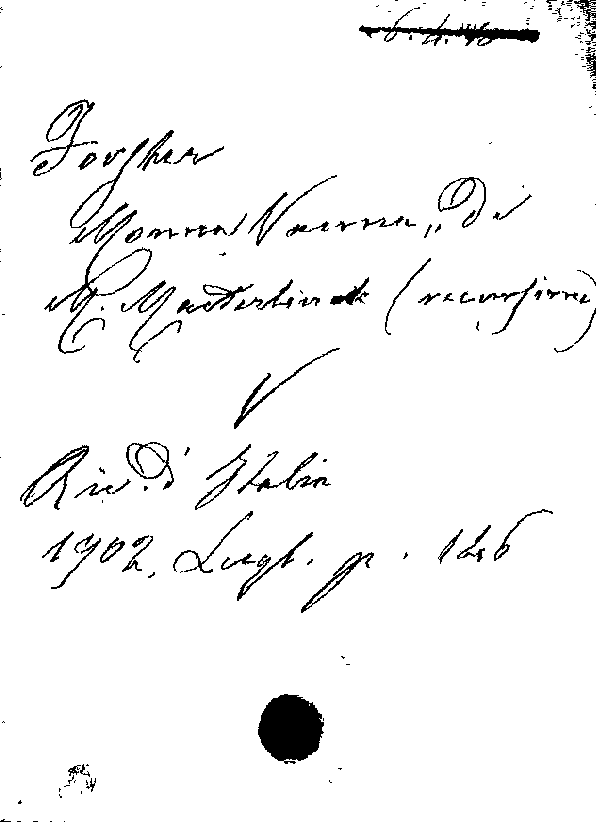 6.4.46
Forster
Monna Vanna„ di
M. Maeterlinck (recensione)
V
Riv. d'Italia
1902, Lugl. p. 146